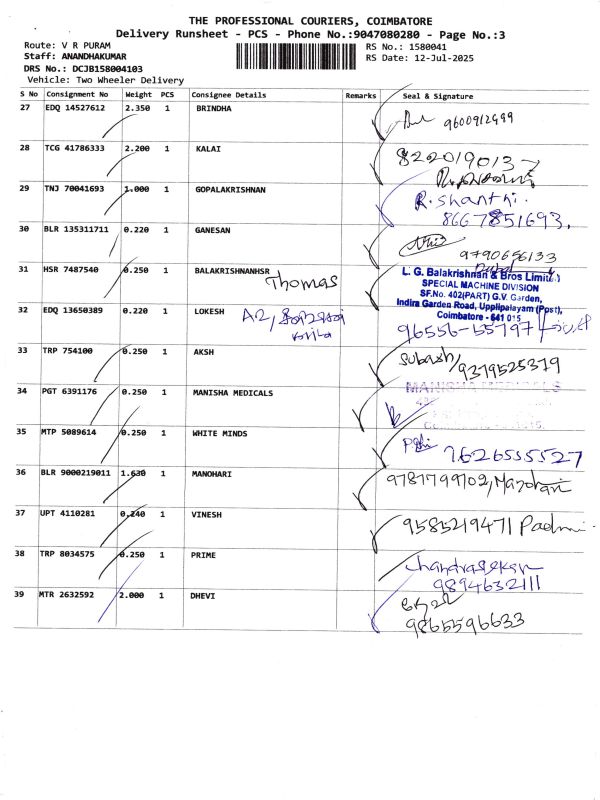 THE PROFESSIONAL COURIERS, COIMBATORE
Delivery Runsheet - PCS - Phone No.:9047080280 - Page No.:3
Route: V R PURAM
Staff: ANANDHAKUMAR
DRS No.: DCJB158004103
Vehicle: Two Wheeler Delivery
RS No.: 1580041
RS Date: 12-Jul-2025
S No Consignment No Weight PCS Consignee Details Remarks Seal & Signature
27 EDQ 14527612 2.350 1 BRINDHA
9600912999
28 TCG 41786333 2.200 1 KALAI
8220190137
29 TNJ 70041693 1.000 1 GOPALAKRISHNAN
R. Shanthi.
8667851693.
30 BLR 135311711 0.220 1 GANESAN
9790656133
31 HSR 7487540 0.250 1 BALAKRISHNANHSR
Thomas
L. G. Balakrishnan & Bros Limited
SPECIAL MACHINE DIVISION
SF.No. 402(PART) G.V. Garden,
Indira Garden Road, Uppilipalayam (Post),
Coimbatore - 641 015
32 EDQ 13650389 0.220 1 LOKESH
96556-55797
33 TRP 754100 0.250 1 AKSH
Subash/9379525379
34 PGT 6391176 0.250 1 MANISHA MEDICALS
MANISHA MEDICALS
35 MTP 5089614 0.250 1 WHITE MINDS
7626535527
36 BLR 9000219011 1.630 1 MANOHARI
9787799102, Manohari
37 UPT 4110281 0.240 1 VINESH
9585219471 Padmi
38 TRP 8034575 0.250 1 PRIME
Chandrasekan
9894632111
39 MTR 2632592 2.000 1 DHEVI
9865596633